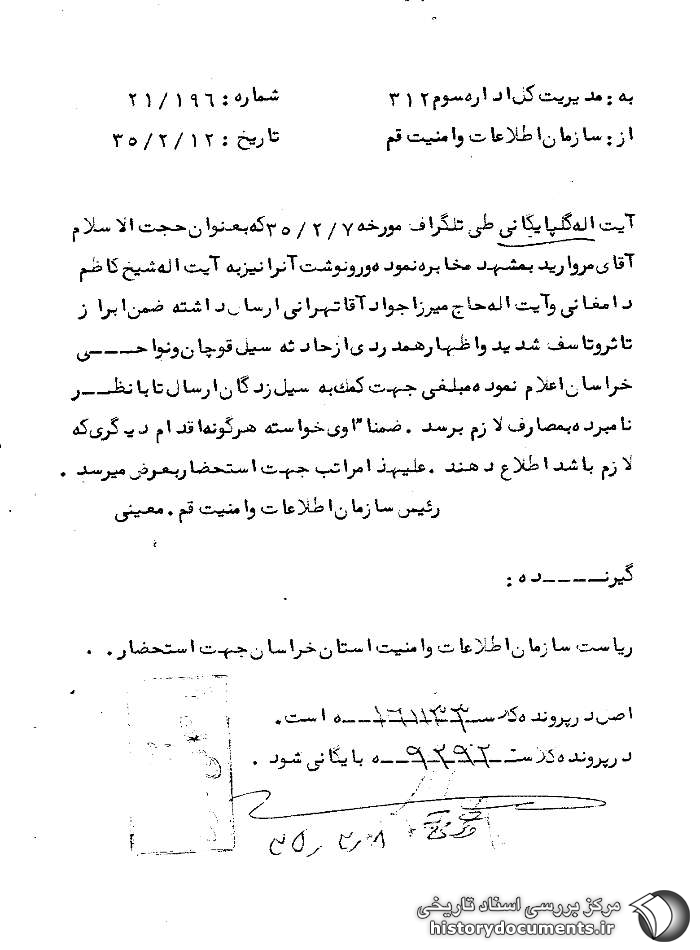 به : مدیریت کل اداره سوم ۳۱۲
شماره : ۲۱/۱۹۶
از : سازمان اطلاعات وامنیت قم
تاریخ : ۳۵/۲/۱۲
آیت اله گلپایگانی طی تلگراف مورخه ۳۵/۲/۷ که بعنوان حجت الاسلام
آقای مروارید بمشهد مخابره نموده ورونوشت آنرا نیز به آیت اله شیخ کاظم
دامغانی وآیت اله حاج میرزا جواد آقا تهرانی ارسال داشته ضمن ابراز
تاثر وتاسف شدید واظهار همدردی از حادثه سیل قوچان ونواحـــی
خراسان اعلام نموده مبلغی جهت کمک به سیل زدگان ارسال تا با نظــر
نامبرده بمصارف لازم برسد . ضمنا" وی خواسته هرگونه اقدام دیگری که
لازم باشد اطلاع دهند . علیهذا مراتب جهت استحضار بعرض میرسد .
رئیس سازمان اطلاعات وامنیت قم . معینی
گیرنـــــده :
ریاست سازمان اطلاعات وامنیت استان خراسان جهت استحضار . .
اصل در پرونده کلاسه ۱۶۱۱۳۳ است .
در پرونده کلاسه ۹۲۹۲ بایگانی شود .
۳۵٫۲٫۸
مرکز بررسی اسناد تاریخی
historydocuments.ir